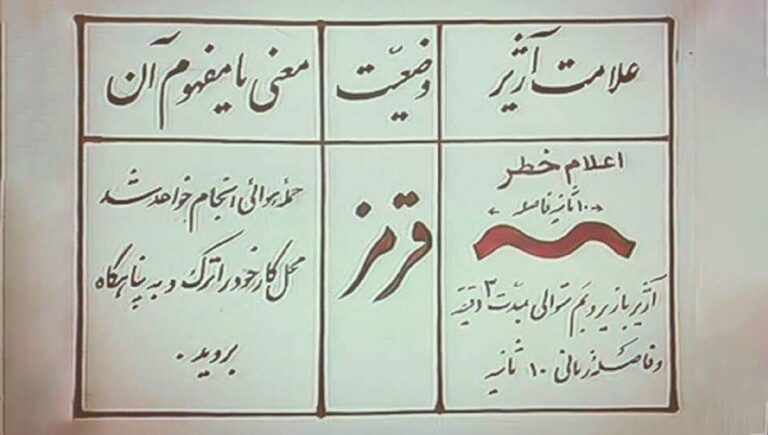 علامت آژیر
وضعیّت
معنی یا مفهوم آن
اعلام خطر
۱۰ ثانیه فاصله
آژیر با زیر و بم متوالی بمدت ۳ دقیقه
و فاصلهٔ زمانی ۱۰ ثانیه
قرمز
حملهٔ هوائی انجام خواهد شد
محل کار خود را ترک و به پناهگاه
بروید.